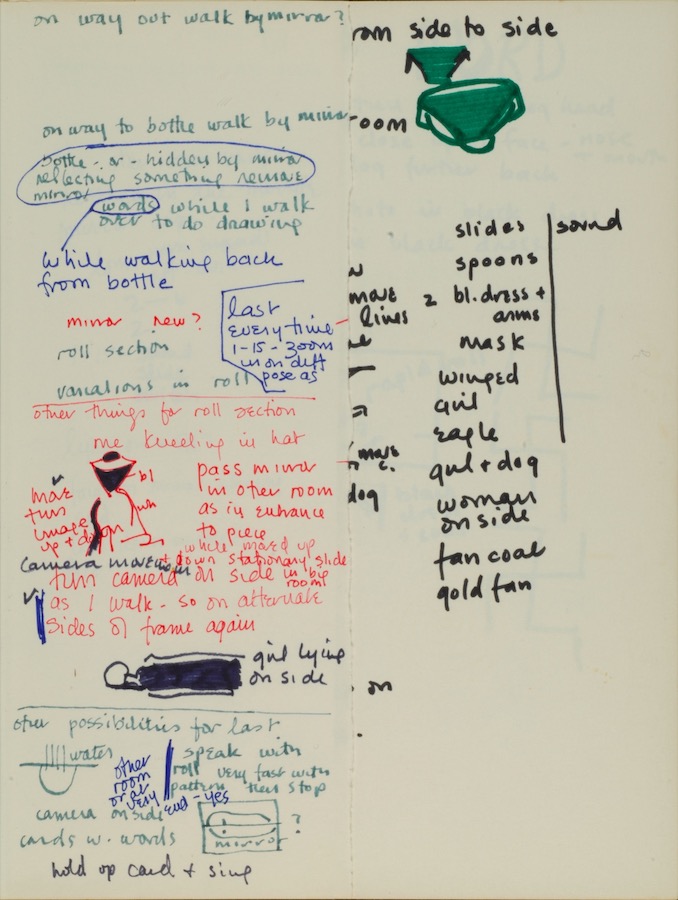 on way out walk by mirror?
on way to bottle walk by mirror
bottle - or - hidden by mirror
reflecting something remove
mirror
words while I walk
over to do drawing
while walking back
from bottle
last
every time
1-15-zoom
in on diff
pose as
mirror new?
roll section
variations in roll
other things for roll section
me kneeling in hat
bl
wh
move
turn
image
up + down
pass mirror
in other room
as in entrance
to piece
while moved up
+ down stationary slide
in big
room
camera move
turn camera on side
as I walk - so on alternate
sides of frame again
girl lying
on side
other possibilities for last
water
other
room
or at
very
end - yes
speak with
roll very fast with
pattern then stop
camera on side
cards w. words
mirror
?
hold up card + sing
rom side to side
oom
move
lines
move
dog
on
slides
spoons
2 bl. dress +
arms
mask
winged
girl
eagle
girl + dog
woman
on side
fan coat
gold fan
sound